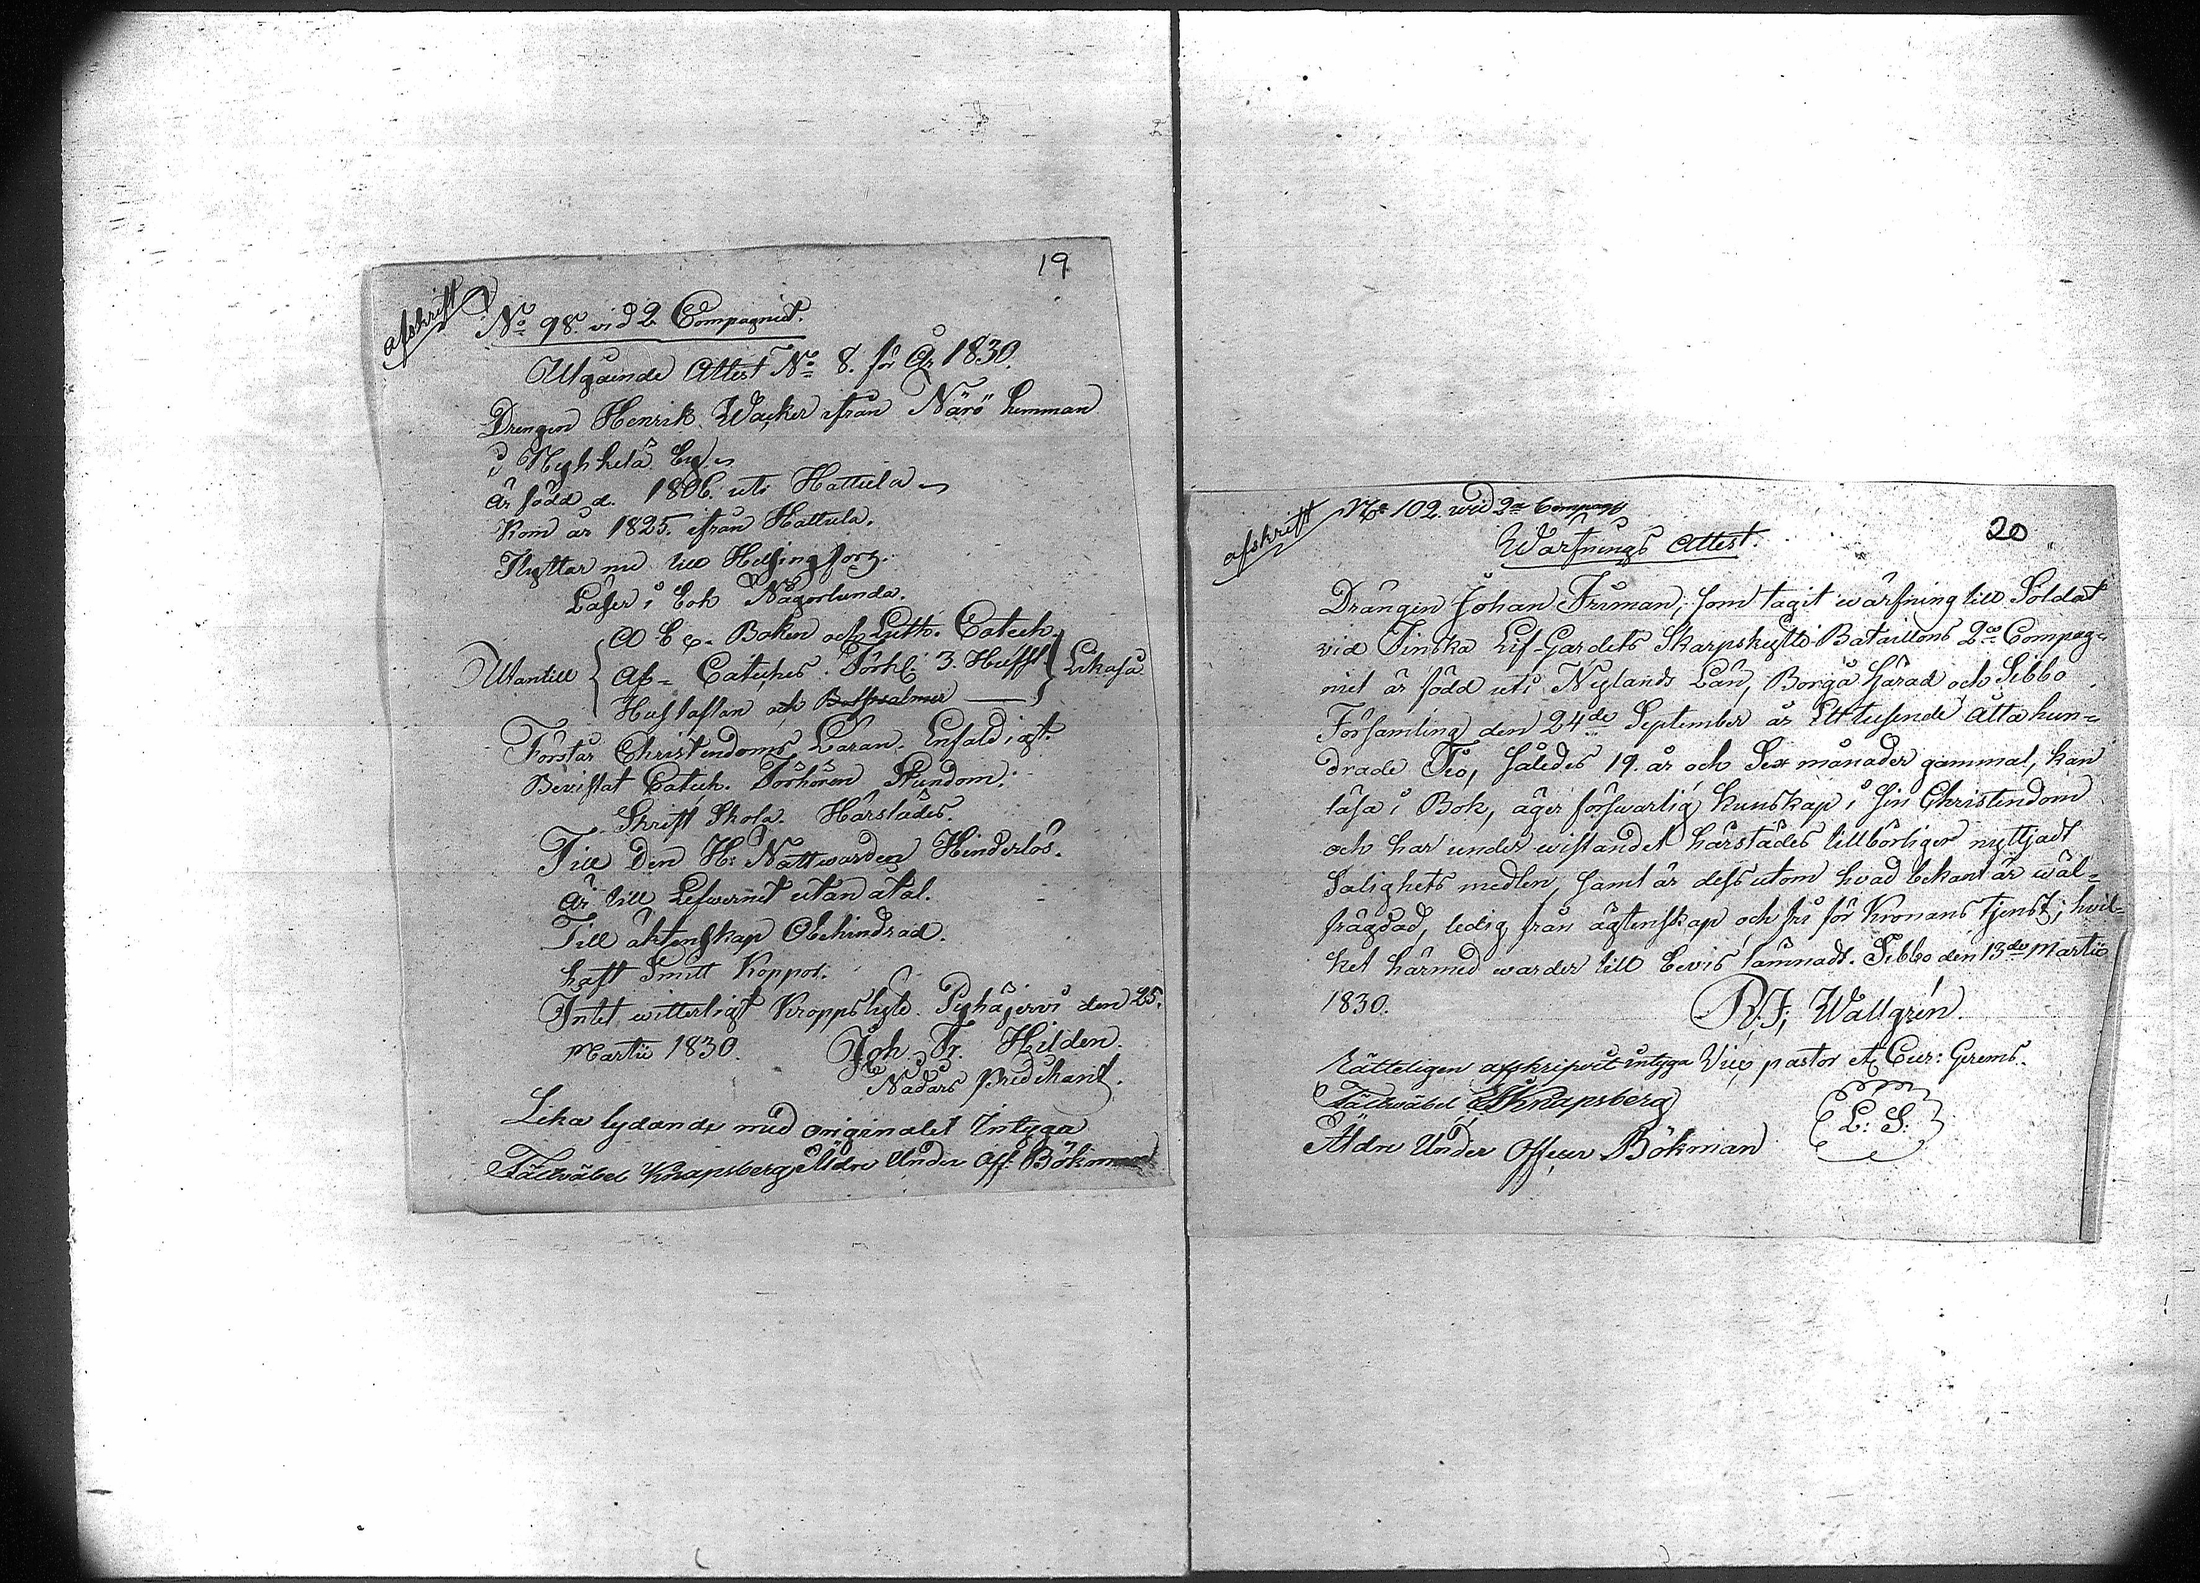 19
afskrift
No 98. vid 2 Compagnit.
Utgående Attest No 8. för År 1830.
Drengen Henrik Wacker ifrån Närö hemman
i By.
är född d. 1806. uti Hattula
Kom år 1825. ifrån Hattula.
Flyttar nu till Helsingfors.
Läser i bok Någorlunda.
A B C. Boken och Luth. Catech.
Utantill Af- Cateches. Förkl. 3. Hufst. Likaså
Hustaflan och Botpsalmer
Förstår Christendoms Läran. Enfaldigt.
Bevistat Catech. Förhören Stundom.
Skrift Skola. Härstädes.
Till Den H: Nattwarden Hinderlös.
Är till Lefwernet utan åtal.
Till äktenskap Obehindrad.
haft Smitt Koppor.
Intet witterligt Kroppslyte. Pyhäjerwi den 25.
Martii 1830. Joh. Fr. Hilden.
Nådårs Predikant.
Lika lydande med originalet Intyga
Fältväbel Knapsberg, Äldre Under Off: Bökman
20
afskrift
No 102. wid 2a Compag
Wärfnings Attest.
Drängen Johan Friman, som tagit wärfning till Soldat
vid Finska Lif-Gardets Skarpskytte Bataillons 2a Compag=
niet är född uti Nylands Län, Borgå Härad och Sibbo
Församling den 24de September år Ett tusende åtta hun=
drade Tio, således 19. år och Sex månader gammal, kan
läsa i Bok, äger försvarlig kunskap i sin Christendom
och har under wistandet härstädes tillbörligen nyttjadt
Salighets medlen, samt är dessutom hvad bekant är wäl=
frägdad, ledig från ägtenskap och fri för Kronans tjenst; hvil=
ket härmed warder till bevis lämnadt. Sibbo den 13de Martii
1830. R: J; Wallgrén.
Rätteligen afskrifvit intyga Vice pastor
Fältväbel Knapsberg
L: S:
Äldre Under Officer Bökman